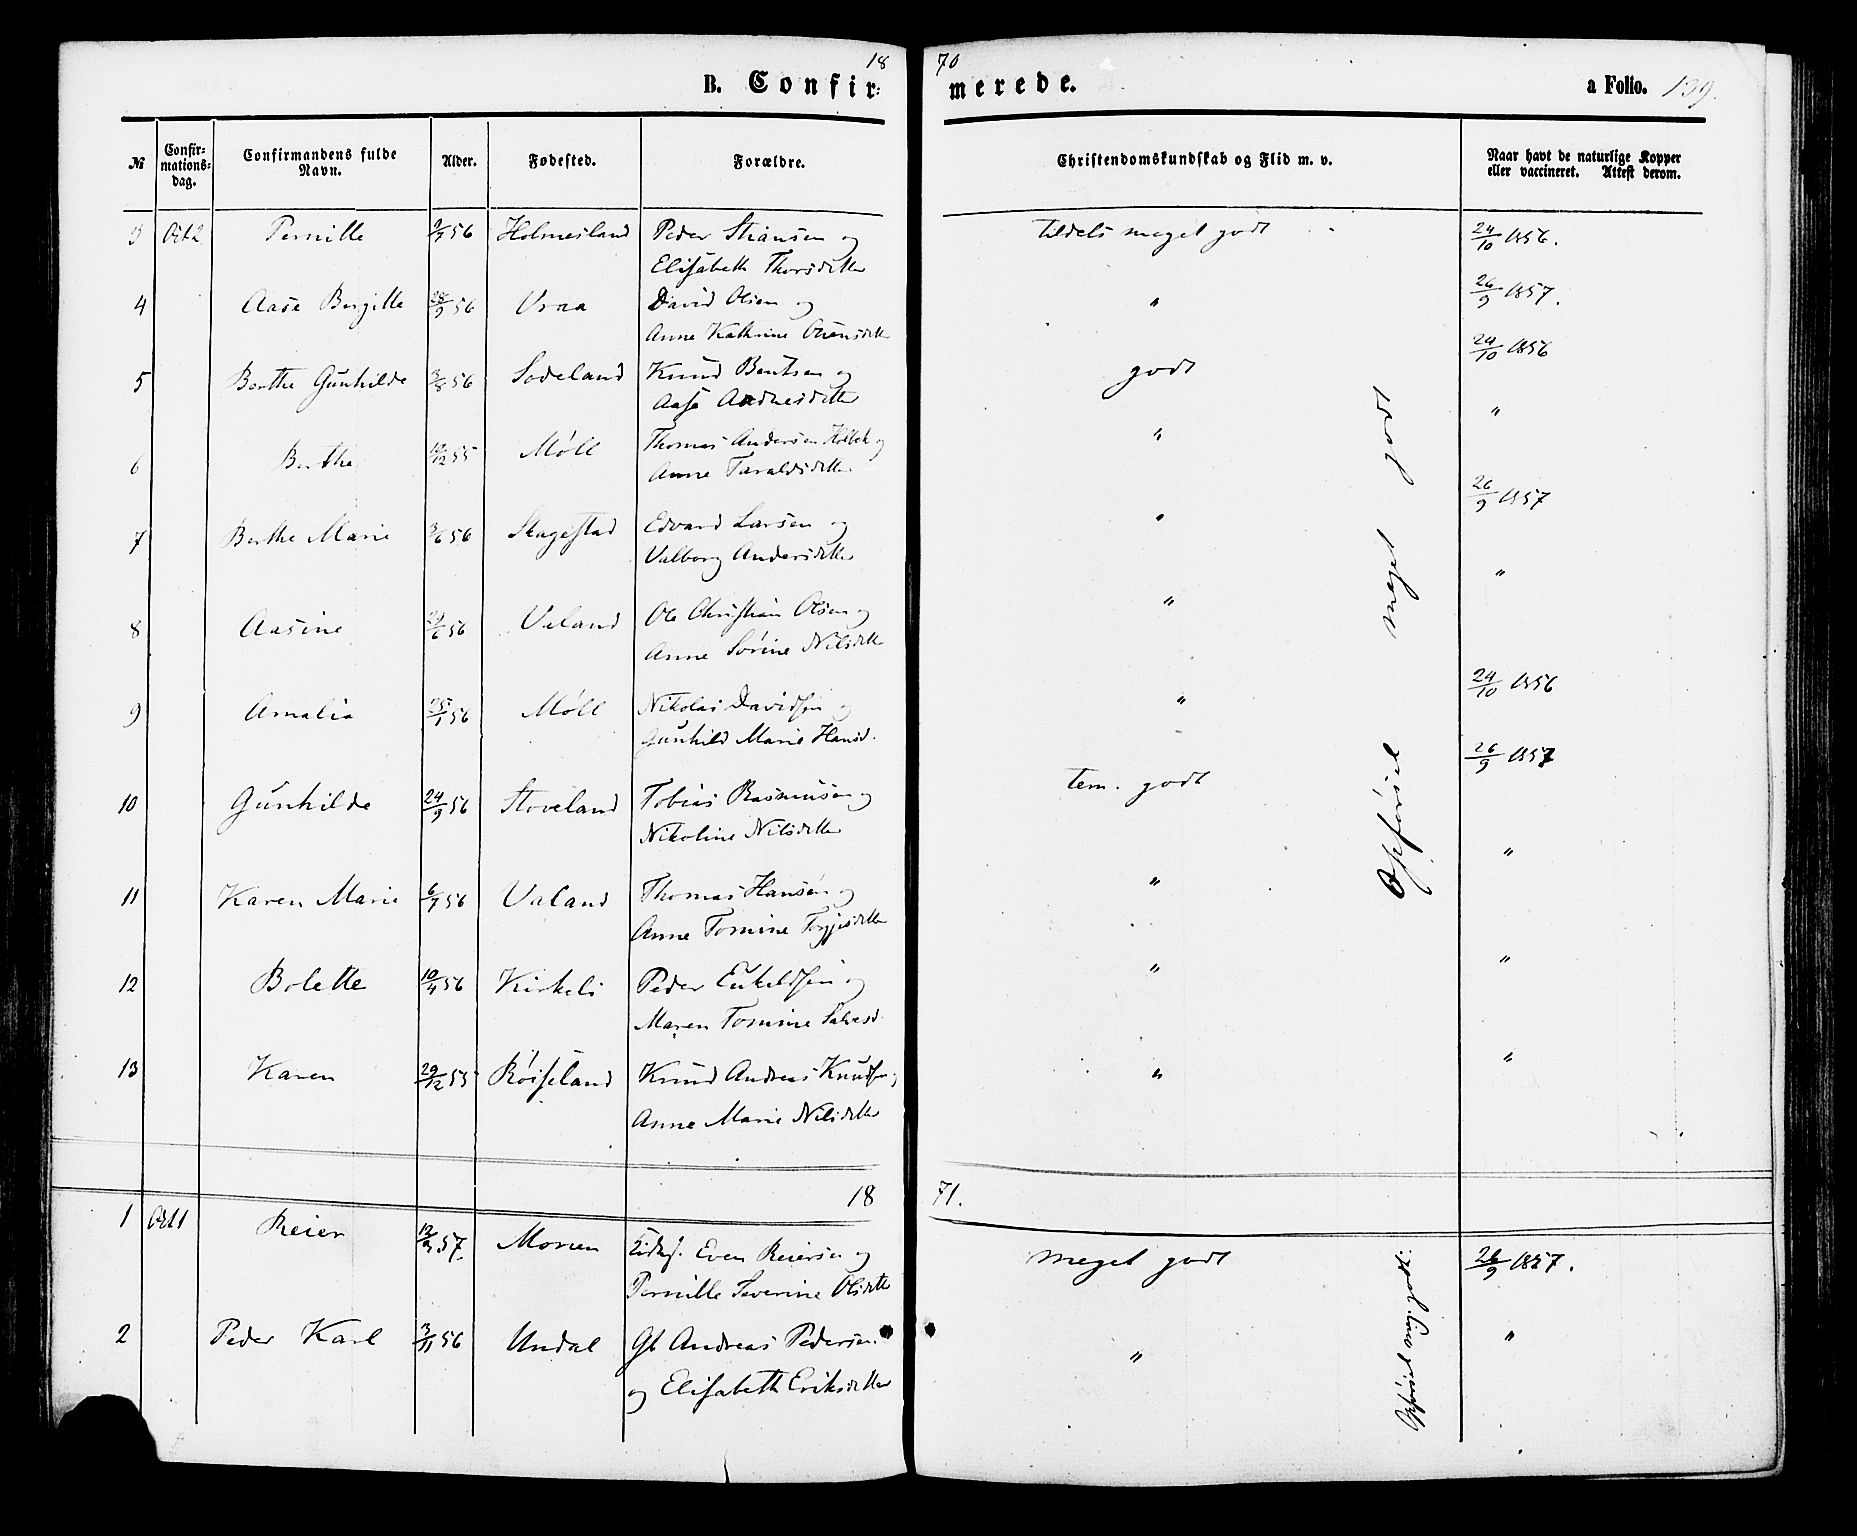 18 70
B. Confir: merede. a Folio. 139.
№ Confir=mations=dag. Confirmandens fulde Navn. Alder. Fødested. Forældre. Christendomskundskab og Flid m. v. Naar havt de naturlige Kopper eller vaccineret. Attest derom.
3 Oct 2 Pernille 56 Holmesland Peder Stiansen og tildels meget godt 24/10 1856.
Elisabeth Thorsdatter
4 Aase Bergitte 28/9 56 Vraa David Olsen og " 26/9 1857.
Anne Kathrine
5 Berthe Gunhilde 3/8 56 Sodeland Knud Bentsen og godt 24/10 1856
Aase Aadnesdatter
6 Berthe 12/12 55 Møll Thomas Andersen og " "
Anne Taraldsdatter
7 Berthe Marie 3/6 56 Skagestad Edvard Larsen og " 26/9 1857
Valborg Andersdatter
8 Aasine 29/6 56 Valand Ole Christian Olsen og " "
Anne Sørine Nilsdatter
9 Amalia 25/1 56 Møll Nikolai Davidsen og " 24/10 1856
Gunhild Marie Hansd.
10 Gunhilde 24/9 56 Stoveland Tobias Rasmussen og tem. godt 26/9 1857
Nikoline Nilsdatter
11 Karen Marie 6/7 56 Valand Thomas Hansen og " "
Anne Tomine
12 Bolette 10/4 56 Kirkeli Peder og " "
Maren Tomine Salvesd.
13 Karen 29/12 55 Røiseland Knud Andreas Knudsen og " "
Anne Marie Nilsdatter
Opførsel meget godt
18 71.
1 Oct 1 Reier 12/3 57. Moen Even Reiersen og meget godt 26/9 1857.
Pernille Severine Olsdatter
2 Peder Karl 3/11 56 Undal Gb Andreas Pedersen " "
og Elisabeth Eriksdatter
Opførsel meg. godt.